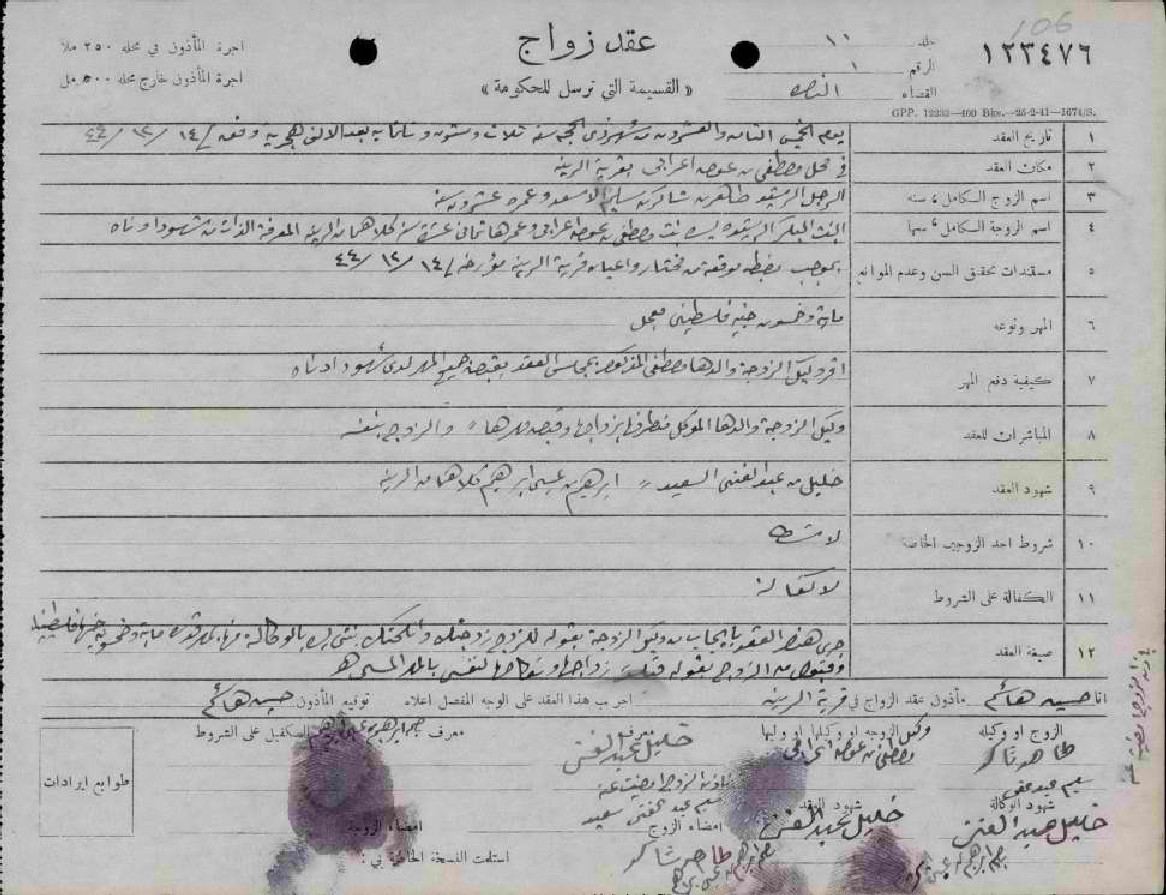 106
١٢٣٤٧٦
عقد زواج
« القسيمة التي ترسل للحكومة »
اجرة المأذون في محله ٢٥٠ ملا
اجرة المأذون خارج محله ٥٠٠ مل
جلد ١١
الرقم ١
القضاء
GPP. 12232—400 Bks.—26-2-41—1671/S.
١ تاريخ العقد يوم الخميس الثامن والعشرون من شهر ذي الحجه سنة ثلاث وستون وثلثمايه بعد الالف هجرية وفقه ١٤/١٢/٤٤
٢ مكان العقد في محل مصطفى بن عوض اعرابي بقرية الرينه
٣ اسم الزوج الكامل، سنه الرجل الرشيد طاهر بن شاكر بن سليم الاسعد وعمره عشرون سنة
٤ اسم الزوجة الكامل، سنها البنت البكر الرشيده بنت مصطفى بن عوض اعرابي وعمرها ثماني عشرة سنة كلاهما من الرينه المعرفة الذات من شهود ادناه
٥ مستندات تحقق السن وعدم الموانع بموجب مضبطه موقعه من مختار واعيان قرية الرينه مؤرخه ١٤/١٢/٤٤
٦ المهر ونوعه ماية وخمسون جنيه فلسطيني معجل
٧ كيفية دفع المهر اقر وكيل الزوجة والدها مصطفى المذكور بمجلس العقد بقبضه جميع المهر لدى شهود ادناه
٨ المباشران للعقد وكيل الزوجة والدها الموكل من طرفها بزواجها وقبض مهرها والزوج بنفسه
٩ شهود العقد خليل بن عبد الغني السعيد ابراهيم بن عيسى ابراهيم كلاهما من الرينه
١٠ شروط احد الزوجين الخاصة لا شرط
١١ الكفالة على الشروط لا كفالة
١٢ صيغة العقد جرى هذا العقد بايجاب من وكيل الزوجة بقوله للزوج زوجتك وانكحتك بنتي بالوكالة عنها بمهر قدره ماية وخمسون جنيها فلسطينيا
وقبول من الزوج بقوله قبلت زواجها ونكاحها لنفسي بالمهر المسمى
انا حسين هاشم مأذون عقد الزواج في قرية الرينه اجريت هذا العقد على الوجه المفصل اعلاه توقيع المأذون حسين هاشم
الزوج او وكيله وكيل الزوجه او وكيلها او وليها معرف الكفيل على الشروط
طاهر شاكر مصطفى بن عوض اعرابي خليل عبد الغني
طوابع ايرادات
شهود الوكالة شهود العقد
خليل عبد الغني خليل عبد الغني
امضاء الزوج امضاء الزوجة
طاهر شاكر
استلمت النسخة الخاصة بي :